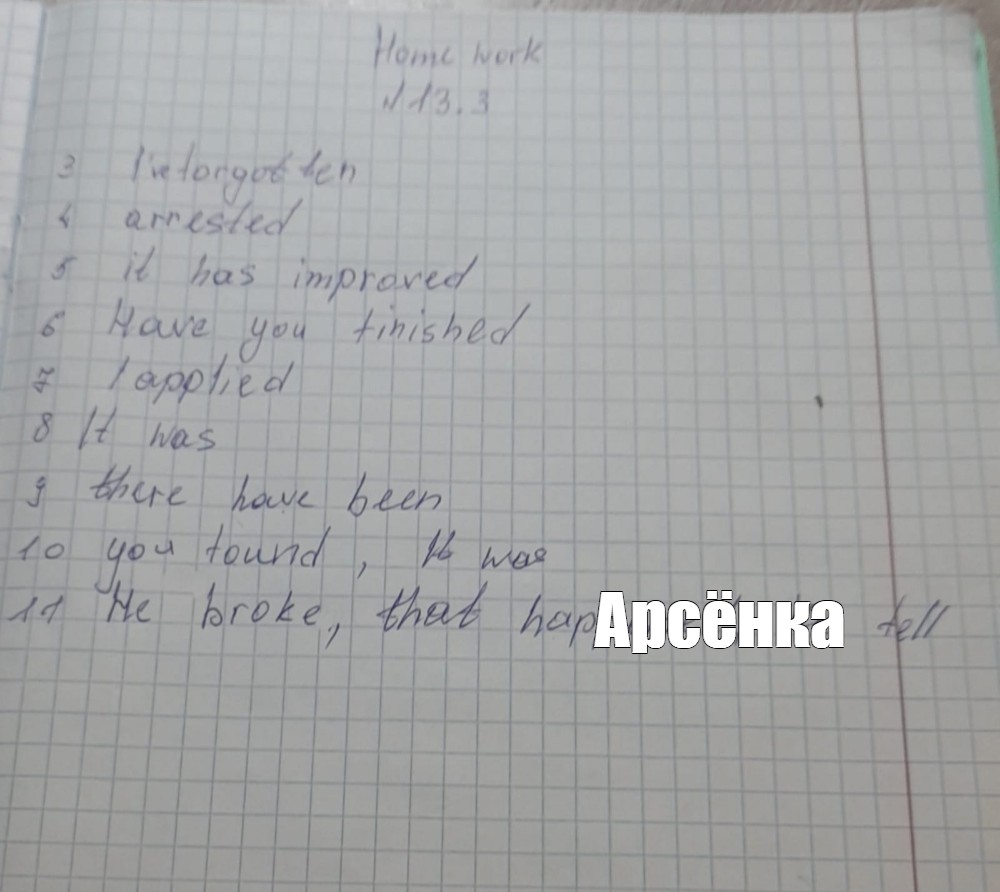 Home work
№13.3
3 I've forgotten
4 arrested
5 it has improved
6 Have you finished
7 I applied
8 It was
9 there have been
10 you found, It was
11 He broke, that Арсёнка fell